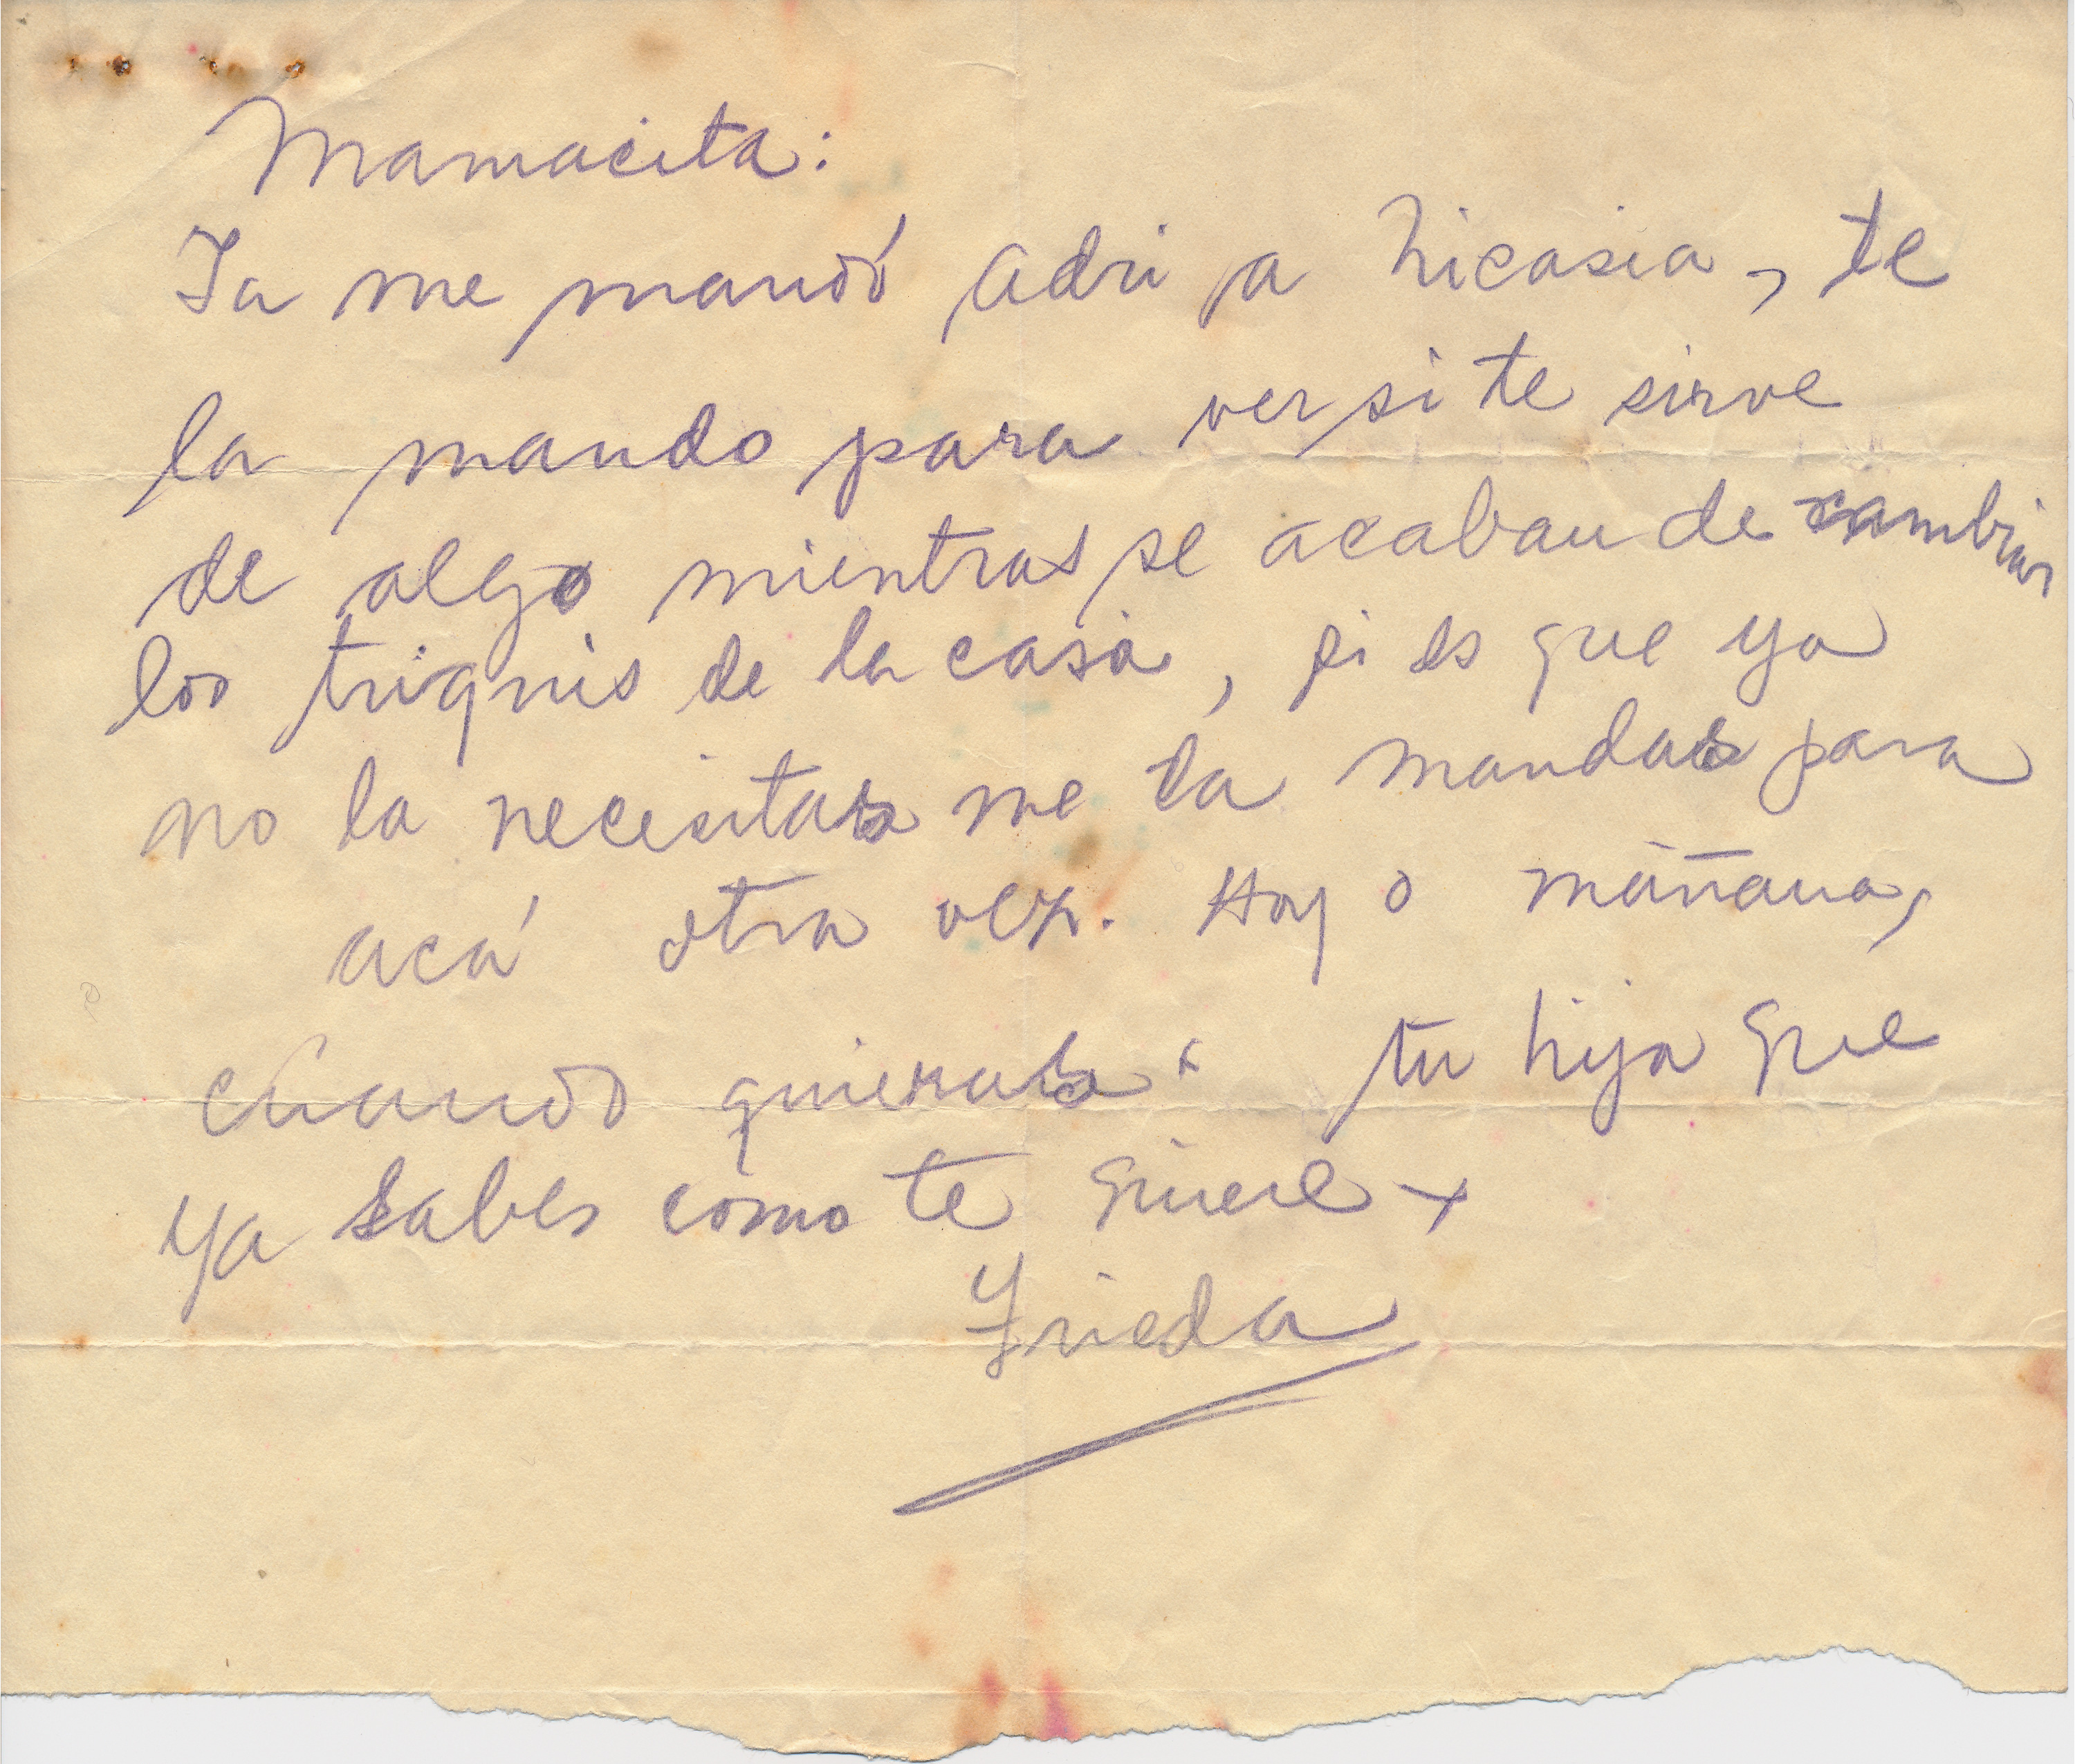 Mamacita:
Ya me mandó Adri a Nicasia, te
la mando para ver si te sirve
de algo mientras se acaban de cambiar
los triquis de la casa, si es que ya
no la necesitas me la mandas para
acá otra vez. Hoy o mañana,
cuando quieras. tu hija que
ya sabes como te quiere +
Frieda